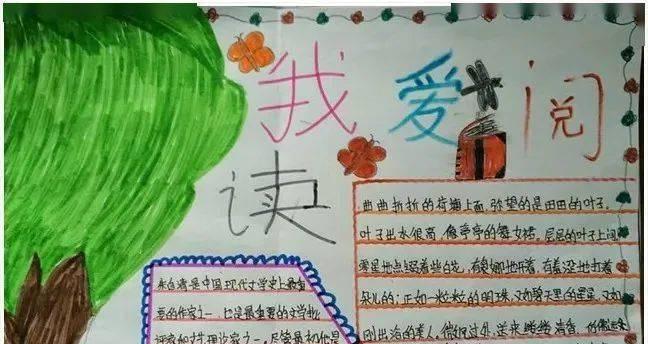 我爱阅
读
曲曲折折的荷塘上面,弥望的是田田的叶子。
叶子出水很高,像亭亭的舞女裙。层层的叶子上间
零星地点缀着些白花,有袅娜地开着,有羞涩地打着
朵儿的;正如一粒粒的明珠,又如碧天里的星星,又如
刚出浴的美人。微风过处,送来缕缕清香,仿佛远来
朱自清是中国现代文学史上最重
要的作家之一,也是最重要的文学批
评家和文学理论家之一。尽管最初他是